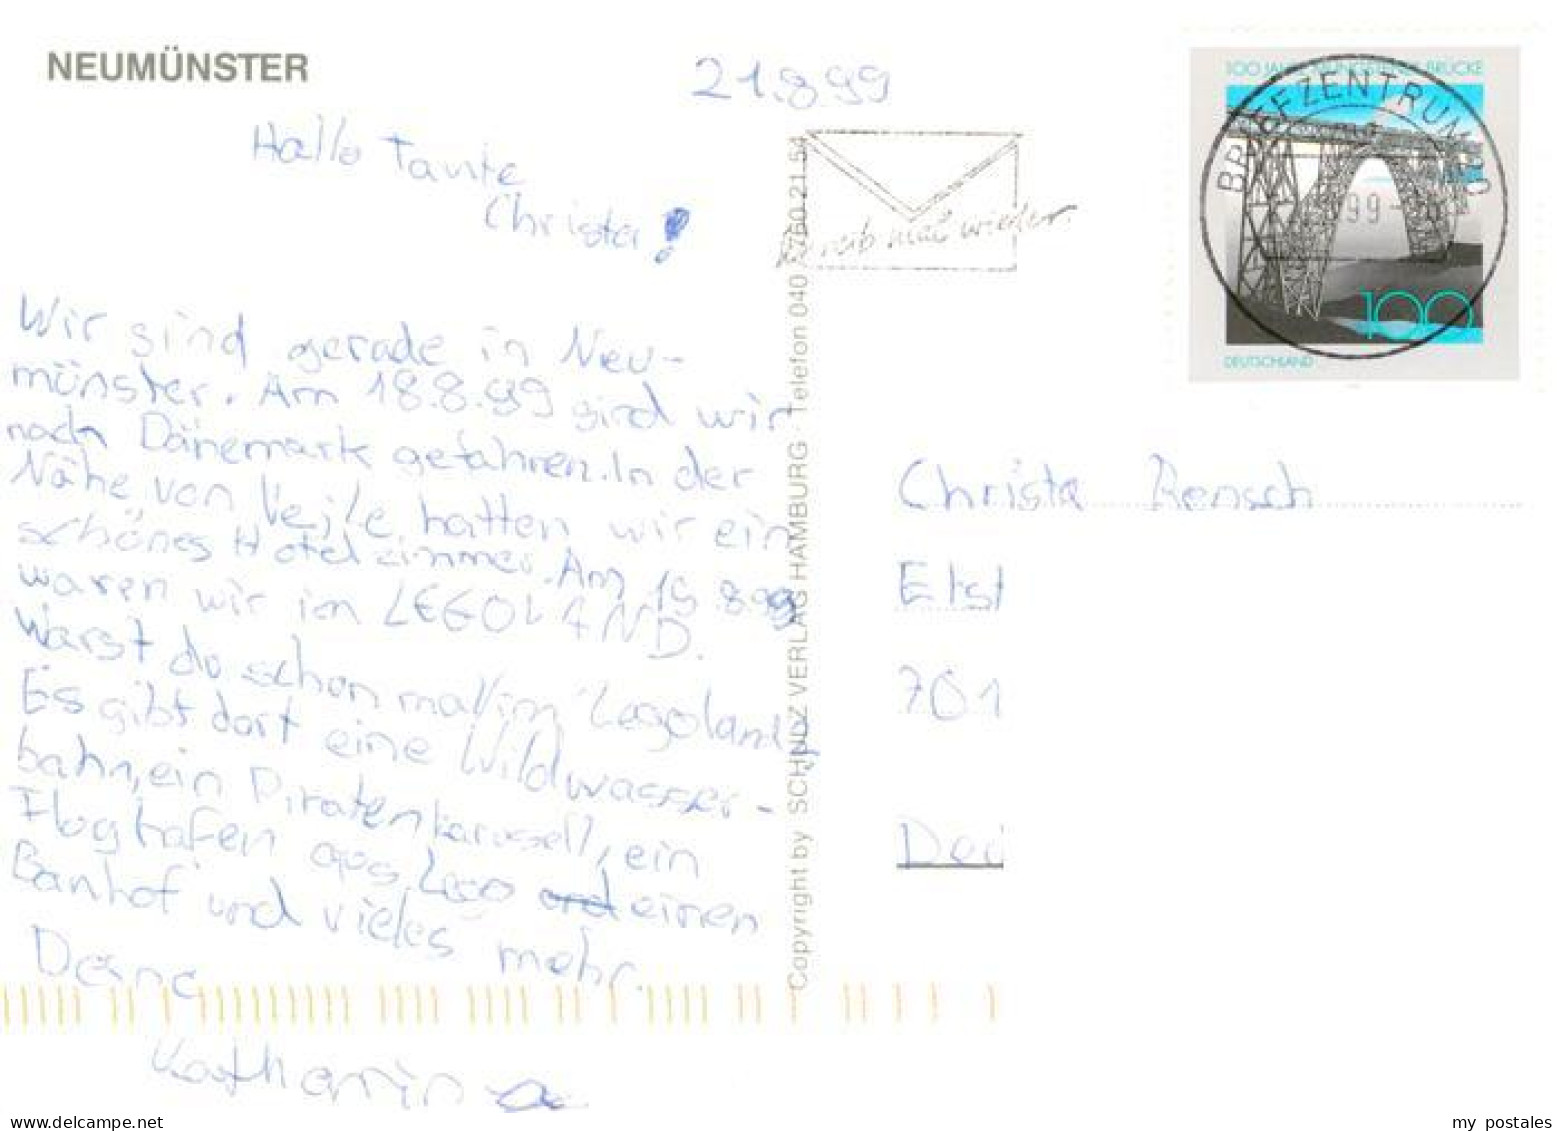 NEUMÜNSTER
21.8.99
Hallo Tante
Christa!
Wir sind gerade in Neu-
münster. Am 18.8.99 sind wir
nach Dänemark gefahren. In der
Nähe von Vejle hatten wir ein
schönes Hotelzimmer. Am 19.8.99
waren wir im LEGOLAND.
Warst du schon mal im Legoland?
Es gibt dort eine Wildwasser-
bahn, ein Piratenkarussell, ein
Flughafen aus Lego und einen
Banhof und vieles mehr.
Deine
Katharina
Copyright by SCHINDZ VERLAG HAMBURG · Telefon 040 / 760 21 54
Schreib mal wieder.
100 JAHRE MÜNGSTENER BRÜCKE
BRIEFZENTRUM
99
100
DEUTSCHLAND
Christa Rensch
Elst
701
my postales